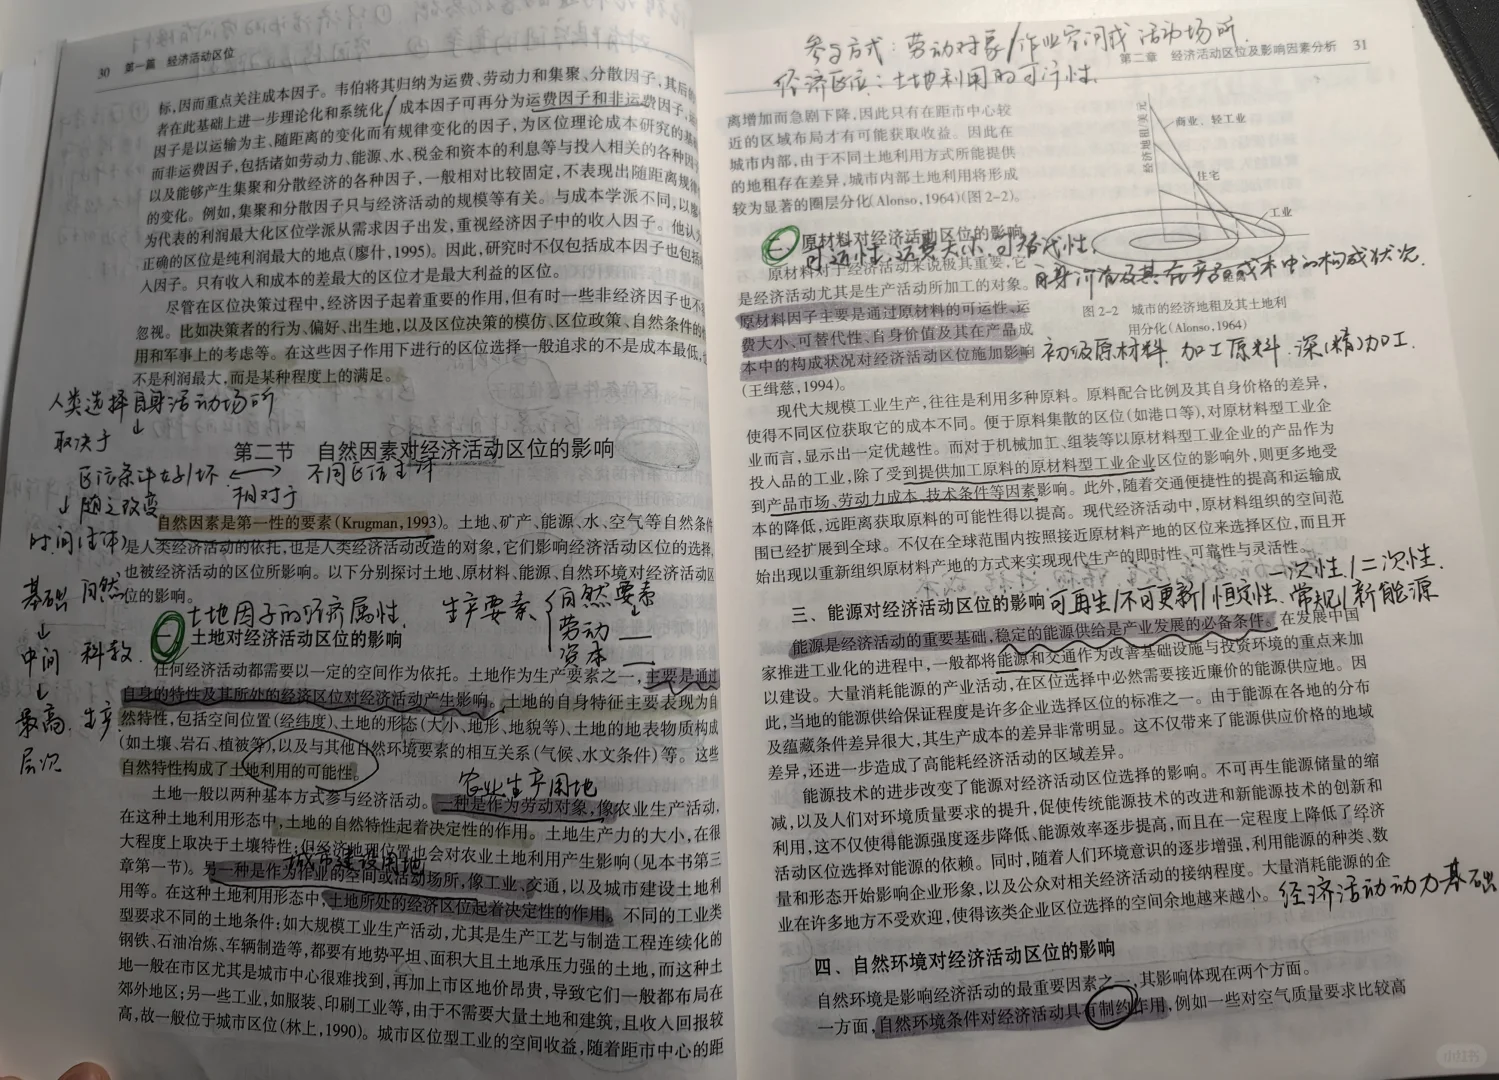 30 第一篇 经济活动区位
标,因而重点关注成本因子。韦伯将其归纳为运费、劳动力和集聚、分散因子,其后的
者在此基础上进一步理论化和系统化/成本因子可再分为运费因子和非运费因子,运
因子是以运输为主、随距离的变化而有规律变化的因子,为区位理论成本研究的基
而非运费因子,包括诸如劳动力、能源、水、税金和资本的利息等与投入相关的各种因
以及能够产生集聚和分散经济的各种因子,一般相对比较固定,不表现出随距离规律
的变化。例如,集聚和分散因子只与经济活动的规模等有关。与成本学派不同,以廖
为代表的利润最大化区位学派从需求因子出发,重视经济因子中的收入因子。他认
正确的区位是纯利润最大的地点(廖什,1995)。因此,研究时不仅包括成本因子也包括
人因子。只有收入和成本的差最大的区位才是最大利益的区位。
尽管在区位决策过程中,经济因子起着重要的作用,但有时一些非经济因子也不
忽视。比如决策者的行为、偏好、出生地,以及区位决策的模仿、区位政策、自然条件的
用和军事上的考虑等。在这些因子作用下进行的区位选择一般追求的不是成本最低,
不是利润最大,而是某种程度上的满足。
人类选择自身活动场所
↓
取决于
第二节 自然因素对经济活动区位的影响
区位条件好/坏 ⟷ 不同区位主体
相对于
↓随之改变
时间(主体)
自然因素是第一性的要素(Krugman,1993)。土地、矿产、能源、水、空气等自然条件
是人类经济活动的依托,也是人类经济活动改造的对象,它们影响经济活动区位的选择,
也被经济活动的区位所影响。以下分别探讨土地、原材料、能源、自然环境对经济活动区
位的影响。
基础 自然
↓
中间 科教
↓
最高 生产
层次
土地因子的经济属性.
生产要素{自然要素
劳动
资本
一 土地对经济活动区位的影响
任何经济活动都需要以一定的空间作为依托。土地作为生产要素之一,主要是通过
自身的特性及其所处的经济区位对经济活动产生影响。土地的自身特征主要表现为自
然特性,包括空间位置(经纬度)、土地的形态(大小、地形、地貌等)、土地的地表物质构成
(如土壤、岩石、植被等),以及与其他自然环境要素的相互关系(气候、水文条件)等。这些
自然特性构成了土地利用的可能性。
农业生产用地
土地一般以两种基本方式参与经济活动。一种是作为劳动对象,像农业生产活动,
在这种土地利用形态中,土地的自然特性起着决定性的作用。土地生产力的大小,在很
大程度上取决于土壤特性;但经济地理位置也会对农业土地利用产生影响(见本书第三
城市建设用地
章第一节)。另一种是作为作业的空间或活动场所,像工业、交通,以及城市建设土地利
用等。在这种土地利用形态中,土地所处的经济区位起着决定性的作用。不同的工业类
型要求不同的土地条件;如大规模工业生产活动,尤其是生产工艺与制造工程连续化的
钢铁、石油冶炼、车辆制造等,都要有地势平坦、面积大且土地承压力强的土地,而这种土
地一般在市区尤其是城市中心很难找到,再加上市区地价昂贵,导致它们一般都布局在
郊外地区;另一些工业,如服装、印刷工业等,由于不需要大量土地和建筑,且收入回报较
高,故一般位于城市区位(林上,1990)。城市区位型工业的空间收益,随着距市中心的距
参与方式:劳动对象/作业空间或活动场所.
第二章 经济活动区位及影响因素分析 31
经济区位:土地利用的可行性.
离增加而急剧下降,因此只有在距市中心较
近的区域布局才有可能获取收益。因此在
城市内部,由于不同土地利用方式所能提供
的地租存在差异,城市内部土地利用将形成
较为显著的圈层分化(Alonso,1964)(图2-2)。
经济地租/美元
商业、轻工业
住宅
工业
图2-2 城市的经济地租及其土地利
用分化(Alonso,1964)
二 原材料对经济活动区位的影响
可运性、运费大小、可替代性,
自身价值及其在产品成本中的构成状况.
原材料对于经济活动来说极其重要,它
是经济活动尤其是生产活动所加工的对象。
原材料因子主要是通过原材料的可运性、运
费大小、可替代性、自身价值及其在产品成
本中的构成状况对经济活动区位施加影响
(王缉慈,1994)。
初级原材料、加工原料、深(精)加工.
现代大规模工业生产,往往是利用多种原料。原料配合比例及其自身价格的差异,
使得不同区位获取它的成本不同。便于原料集散的区位(如港口等),对原材料型工业企
业而言,显示出一定优越性。而对于机械加工、组装等以原材料型工业企业的产品作为
投入品的工业,除了受到提供加工原料的原材料型工业企业区位的影响外,则更多地受
到产品市场、劳动力成本、技术条件等因素影响。此外,随着交通便捷性的提高和运输成
本的降低,远距离获取原料的可能性得以提高。现代经济活动中,原材料组织的空间范
围已经扩展到全球。不仅在全球范围内按照接近原材料产地的区位来选择区位,而且开
始出现以重新组织原材料产地的方式来实现现代生产的即时性、可靠性与灵活性。
一次性/二次性.
三、能源对经济活动区位的影响 可再生/不可更新/恒定性、常规/新能源
能源是经济活动的重要基础,稳定的能源供给是产业发展的必备条件。在发展中国
家推进工业化的进程中,一般都将能源和交通作为改善基础设施与投资环境的重点来加
以建设。大量消耗能源的产业活动,在区位选择中必然需要接近廉价的能源供应地。因
此,当地的能源供给保证程度是许多企业选择区位的标准之一。由于能源在各地的分布
及蕴藏条件差异很大,其生产成本的差异非常明显。这不仅带来了能源供应价格的地域
差异,还进一步造成了高能耗经济活动的区域差异。
能源技术的进步改变了能源对经济活动区位选择的影响。不可再生能源储量的缩
减,以及人们对环境质量要求的提升,促使传统能源技术的改进和新能源技术的创新和
利用,这不仅使得能源强度逐步降低、能源效率逐步提高,而且在一定程度上降低了经济
活动区位选择对能源的依赖。同时,随着人们环境意识的逐步增强,利用能源的种类、数
量和形态开始影响企业形象,以及公众对相关经济活动的接纳程度。大量消耗能源的企
业在许多地方不受欢迎,使得该类企业区位选择的空间余地越来越小。经济活动动力基础
四、自然环境对经济活动区位的影响
自然环境是影响经济活动的最重要因素之一,其影响体现在两个方面。
一方面,自然环境条件对经济活动具有制约作用,例如一些对空气质量要求比较高
小红书